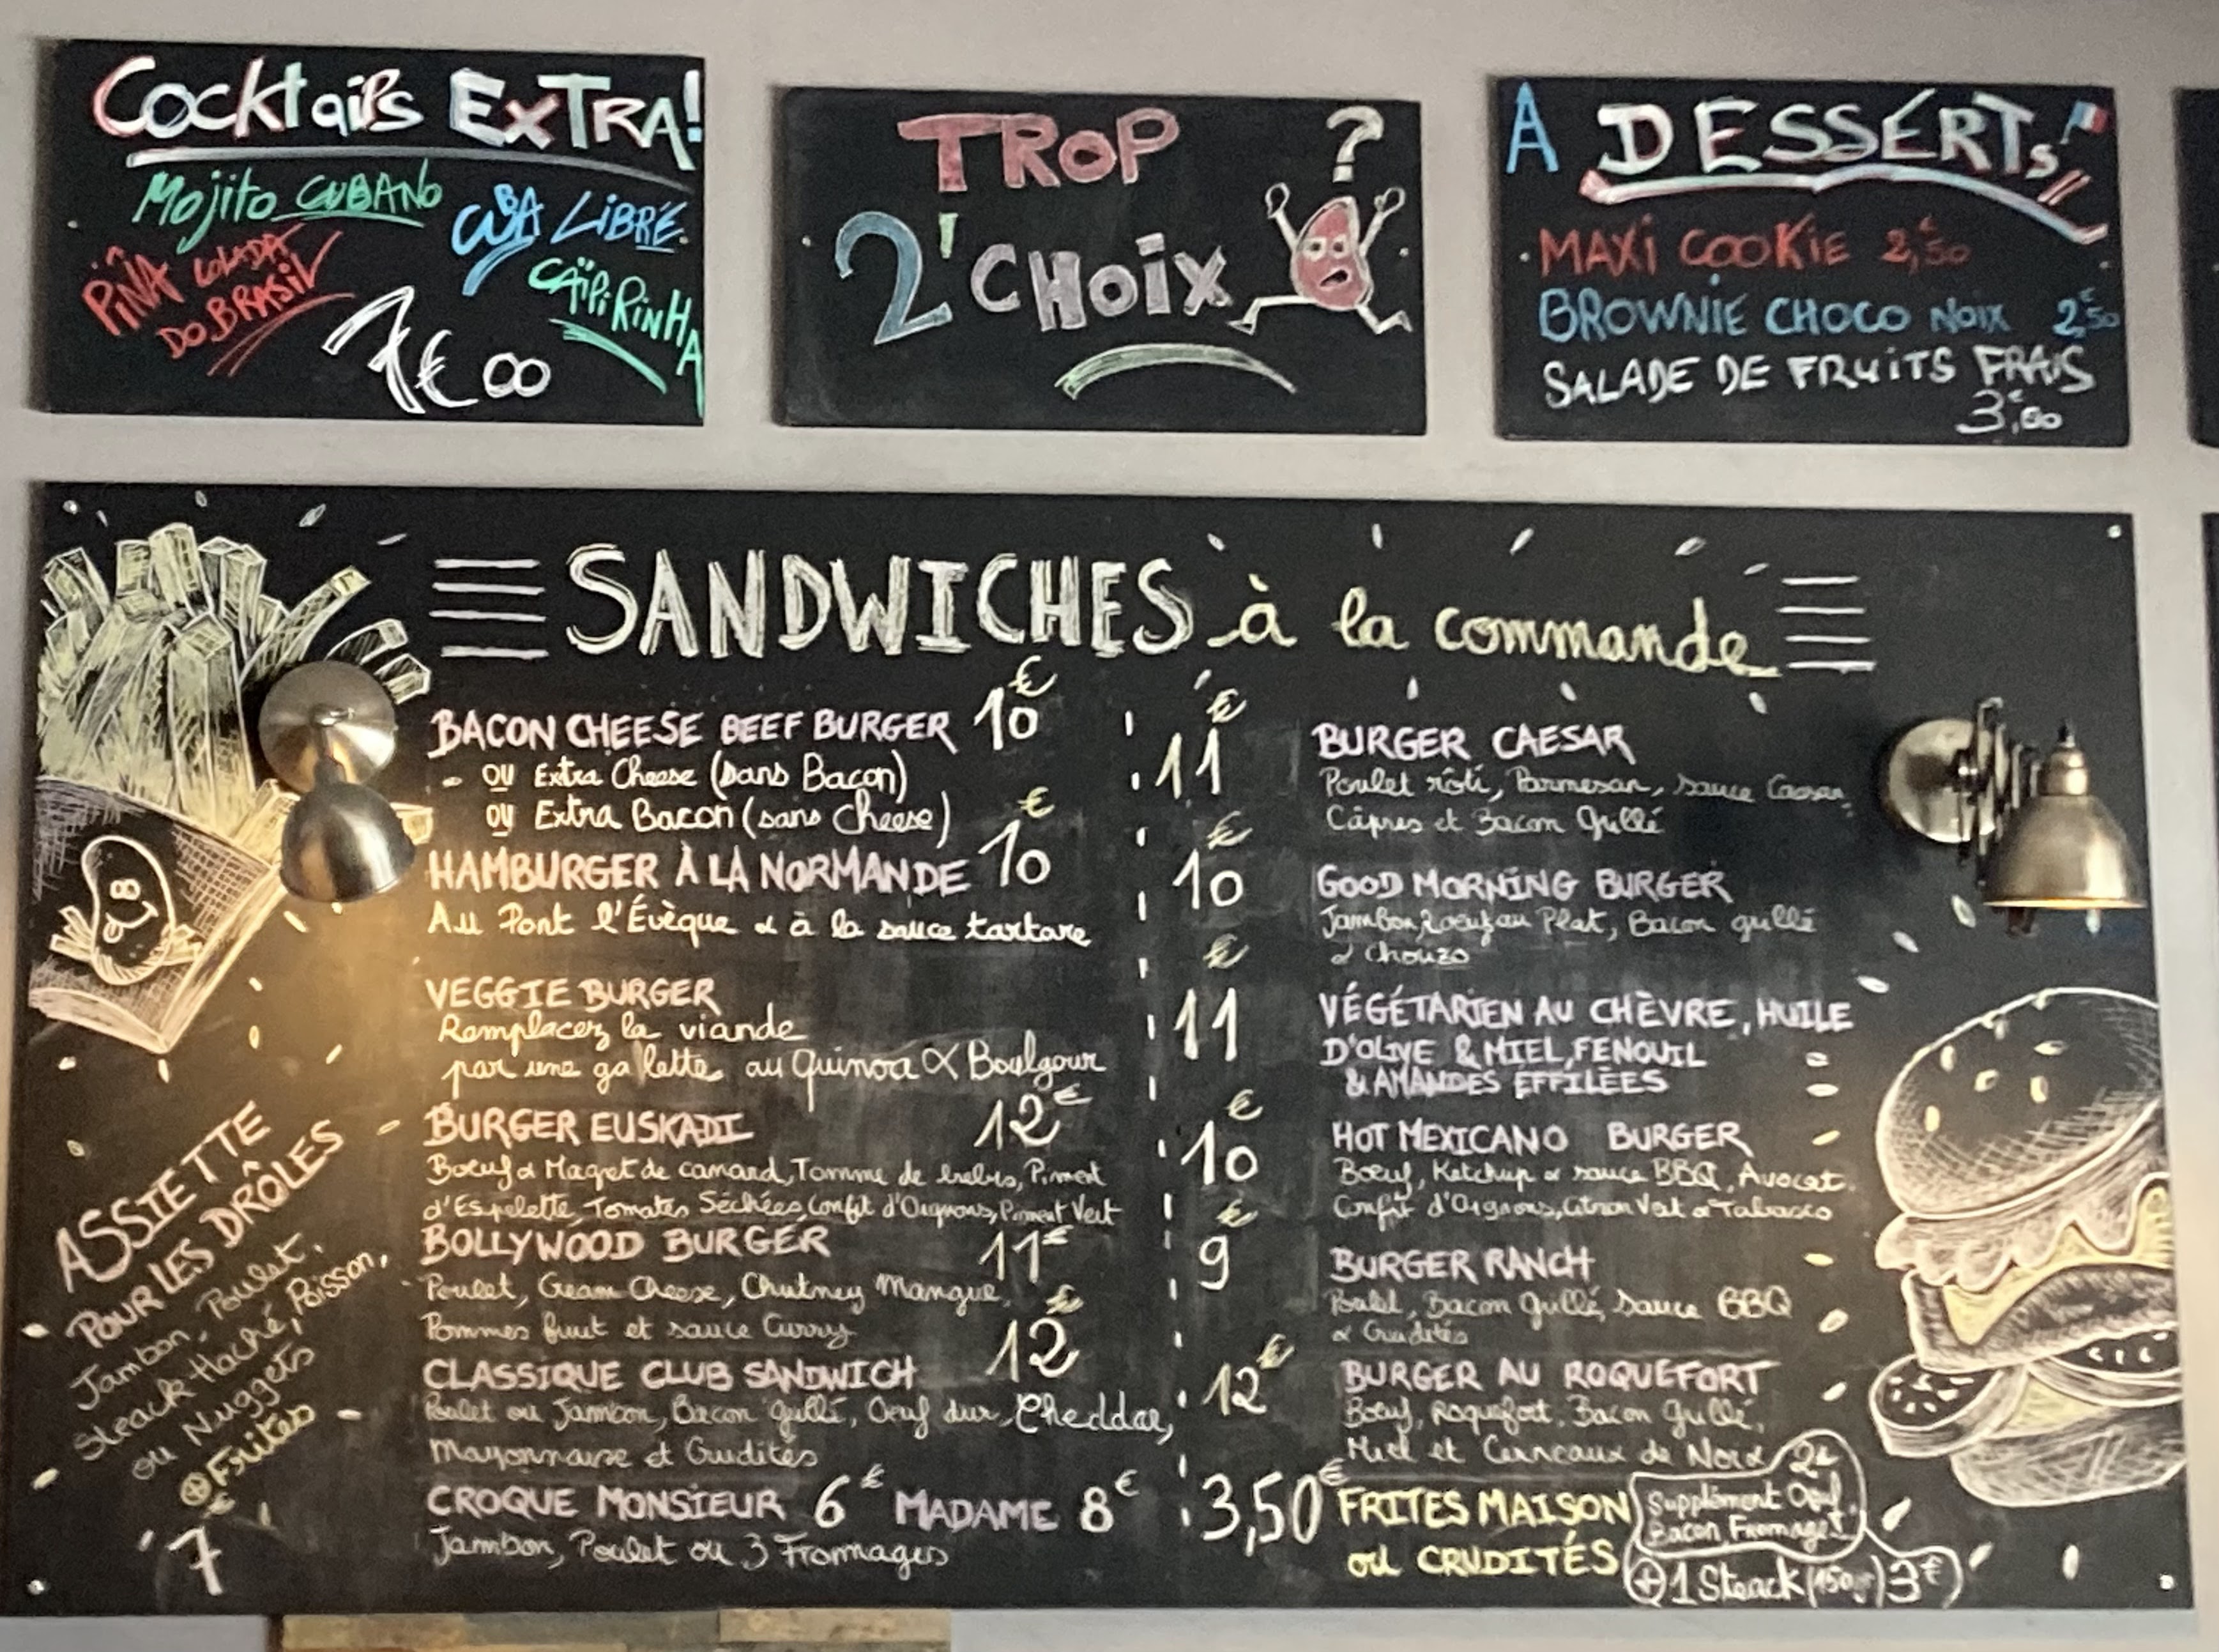 Cocktails EXTRA!
Mojito CUBANO
CUBA LiBRE
PIÑA COLADA
DO BRASiL
CAÏPiRiNHA
7€00
TROP ?
2' CHOiX
A DESSERTs
MAXi COOKiE 2,€50
BROWNiE CHOCO NOiX 2,€50
SALADE DE FRUiTS FRAiS
3,€00
SANDWICHES à la commande
BACON CHEESE BEEF BURGER 10€
- OU Extra Cheese (sans Bacon)
OU Extra Bacon (sans Cheese)
HAMBURGER À LA NORMANDE 10€
Au Pont l'Évèque & à la sauce tartare
VEGGIE BURGER
Remplacez la viande
par une galette au Quinoa & Boulgour
BURGER EUSKADI 12€
Boeuf & Magret de canard, Tomme de brebis, Piment
d'Espelette, Tomates Séchées, Confit d'Oignons, Piment Vert
BOLLYWOOD BURGER 11€
Poulet, Cream Cheese, Chutney Mangue,
Pommes fruit et sauce Curry
CLASSiQUE CLUB SANDWICH 12€
Poulet ou Jambon, Bacon grillé, Oeuf dur, Cheddar,
Mayonnaise et Crudités
CROQUE MONSIEUR 6€ MADAME 8€
Jambon, Poulet ou 3 Fromages
11€ BURGER CAESAR
Poulet rôti, Parmesan, sauce Caesar,
Câpres et Bacon Grillé
10€ GOOD MORNING BURGER
Jambon, oeuf au Plat, Bacon grillé
& Chorizo
11€ VÉGÉTARIEN AU CHÈVRE, HUILE
D'OLIVE & MIEL, FENOUIL
& AMANDES EFFILÉES
10€ HOT MEXICANO BURGER
Boeuf, Ketchup & sauce BBQ, Avocat,
Confit d'Oignons, Citron Vert & Tabasco
9€ BURGER RANCH
Poulet, Bacon Grillé, sauce BBQ
& Crudités
12€ BURGER AU ROQUEFORT
Boeuf, Roquefort, Bacon Grillé,
Miel et Cerneaux de Noix
3,50€ FRITES MAISON
ou CRUDITÉS
2€
Supplément Oeuf,
Bacon, Fromage
+ 1 Steack (150gr) 3€
ASSIETTE
POUR LES DRÔLES
Jambon, Poulet,
Steack Haché, Poisson,
ou Nuggets
+ Frites
7€